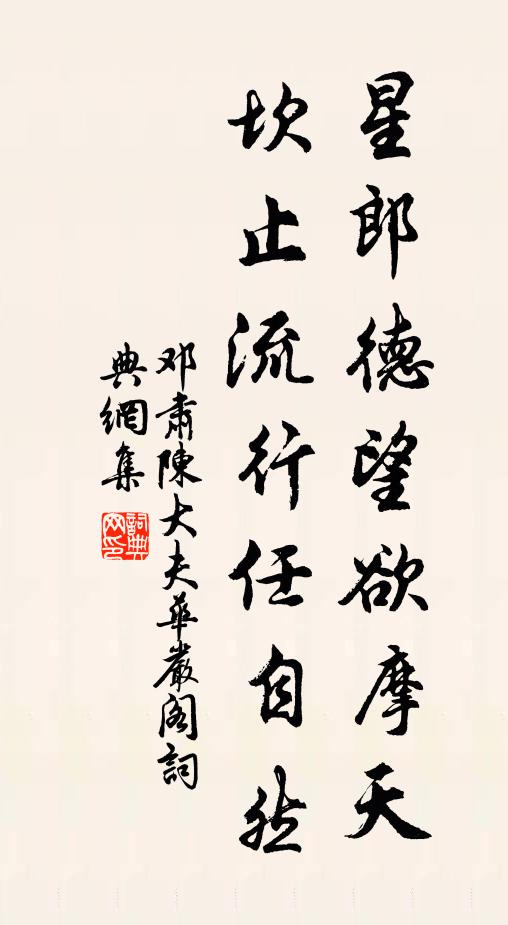 星郎德望欲摩天
坎止流行任自然
邓肅陳大夫華嚴阁詞
典網集
詞典
网印